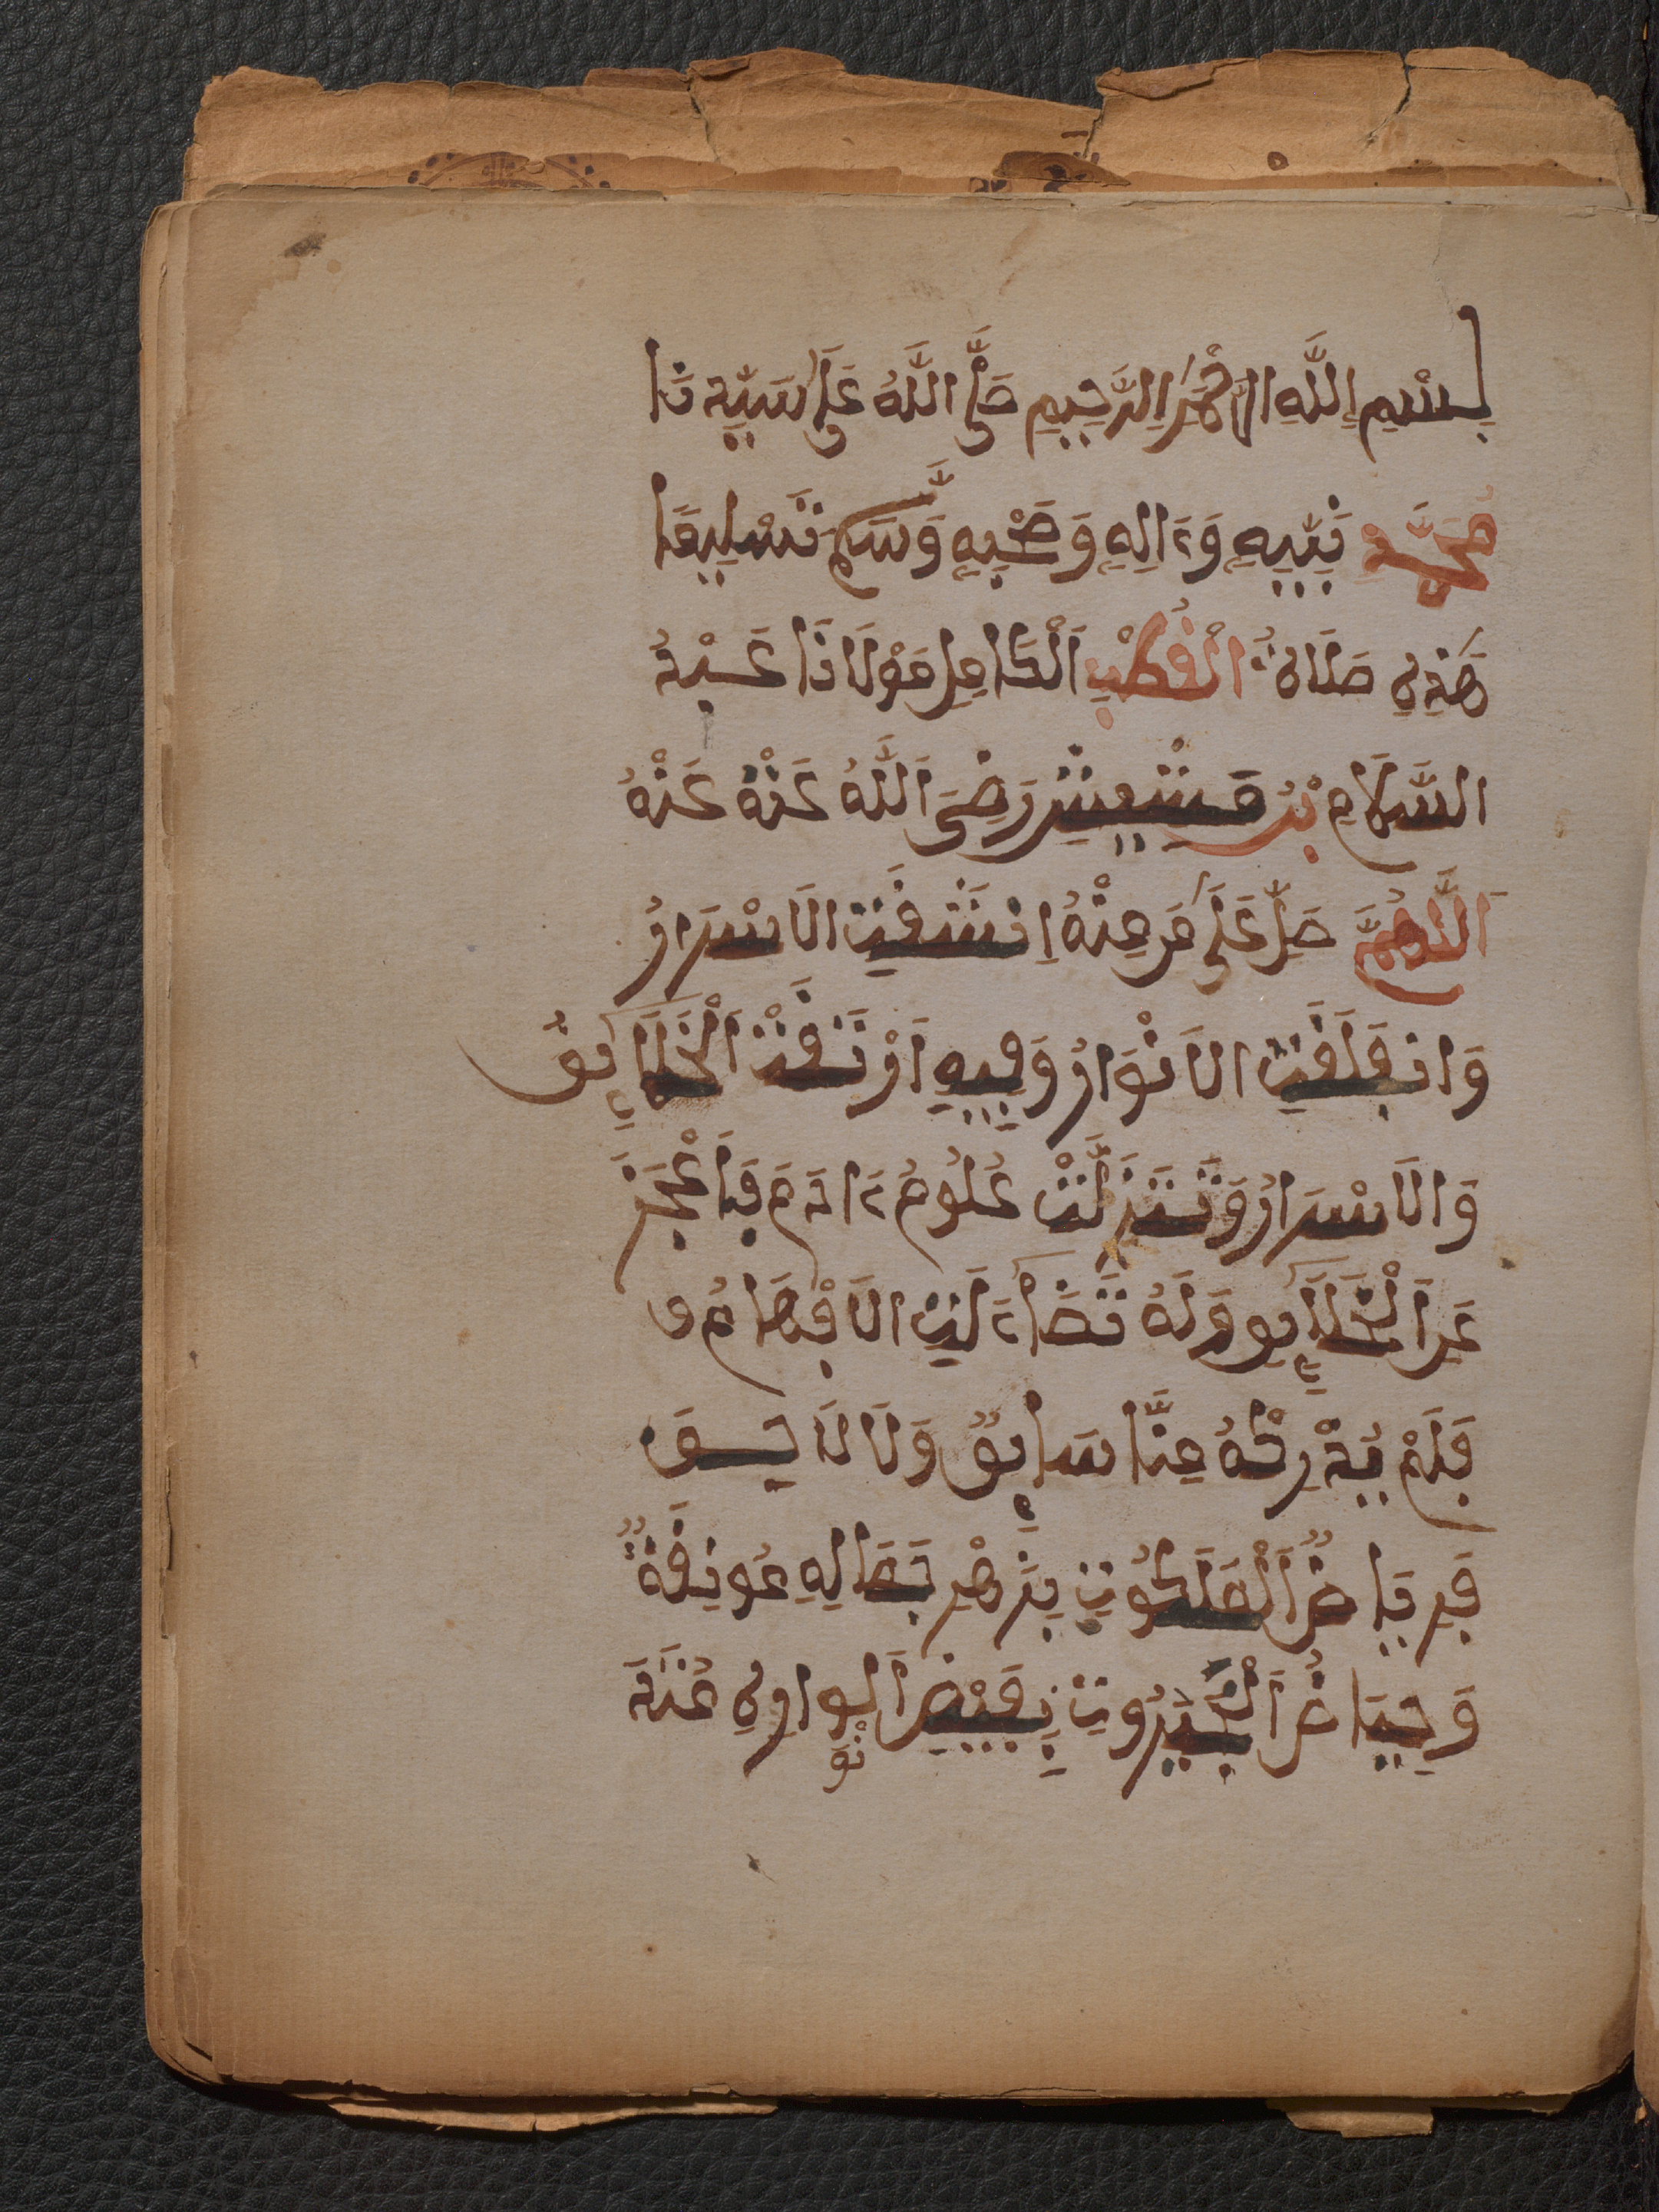 بِسْمِ اِللَّهِ الرَّحْمَٰنِ اِلرَّحِيمِ صَلَّى اَللَّهُ عَلَىٰ سَيِّدِنَا
مُحَمَّدٍ نَبِيِّهِ وَءَالِهِ وَصَحْبِهِ وَسَلَّمَ تَسْلِيمًا
هَٰذِهِ صَلَاةُ الْقُطْبِ اَلْكَامِلِ مَوْلَانَا عَبْدُ
السَّلَامِ بْنُ مَشِيشِ رَضِيَ اَللَّهُ عَنْهُ عَنْهُ
اَللَّهُمَّ صَلِّ عَلَىٰ مَن مِنْهُ اِنشَقَّتِ الَاسْرَارُ
وَانفَلَقَتِ الَانْوَارُ وَفِيهِ اَرْتَقَتْ اَلْخَلَٰآئِقُ
وَالَاسْرَارُ وَتَنَزَّلَتْ عُلُومُ ءَادَمَ فَأَعْجَزَ
عَنِ اَلْخَلَٰآئِقِ وَلَهُ تَضَآءَلَتِ الَافْهَامُ و
فَلَمْ يُدْرِكْهُ مِنَّا سَابِقٌ وَلَا لَا حِسَقَ
فَرِيَاضُ اَلْمَلَكُوتِ بِزَهْرِ جَمَالِهِ مُونِقَةٌ
وَحِيَاضُ اَلْجَبَرُوتِ بِفَيْضِ اَنْوارِهِ مُتَدَ